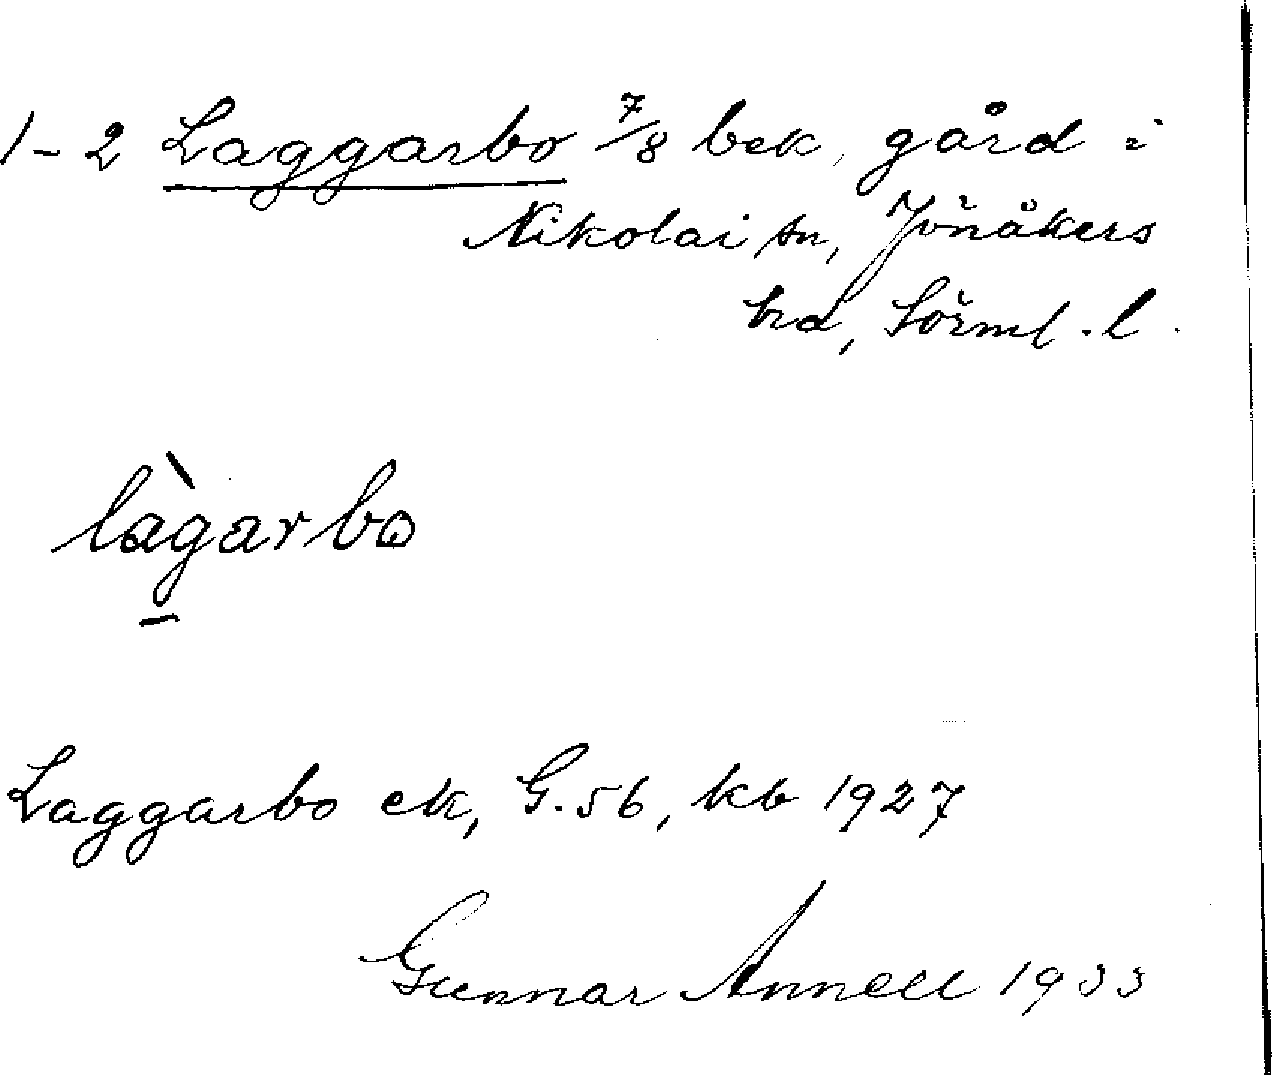 1-2 Laggarbo 7/8 bek. gård i
Nikolai sn, Jönåkers
hd, Sörml. l.
làgarbo
Laggarbo ek, G. 56, kb 1927
Gunnar Annell 1933